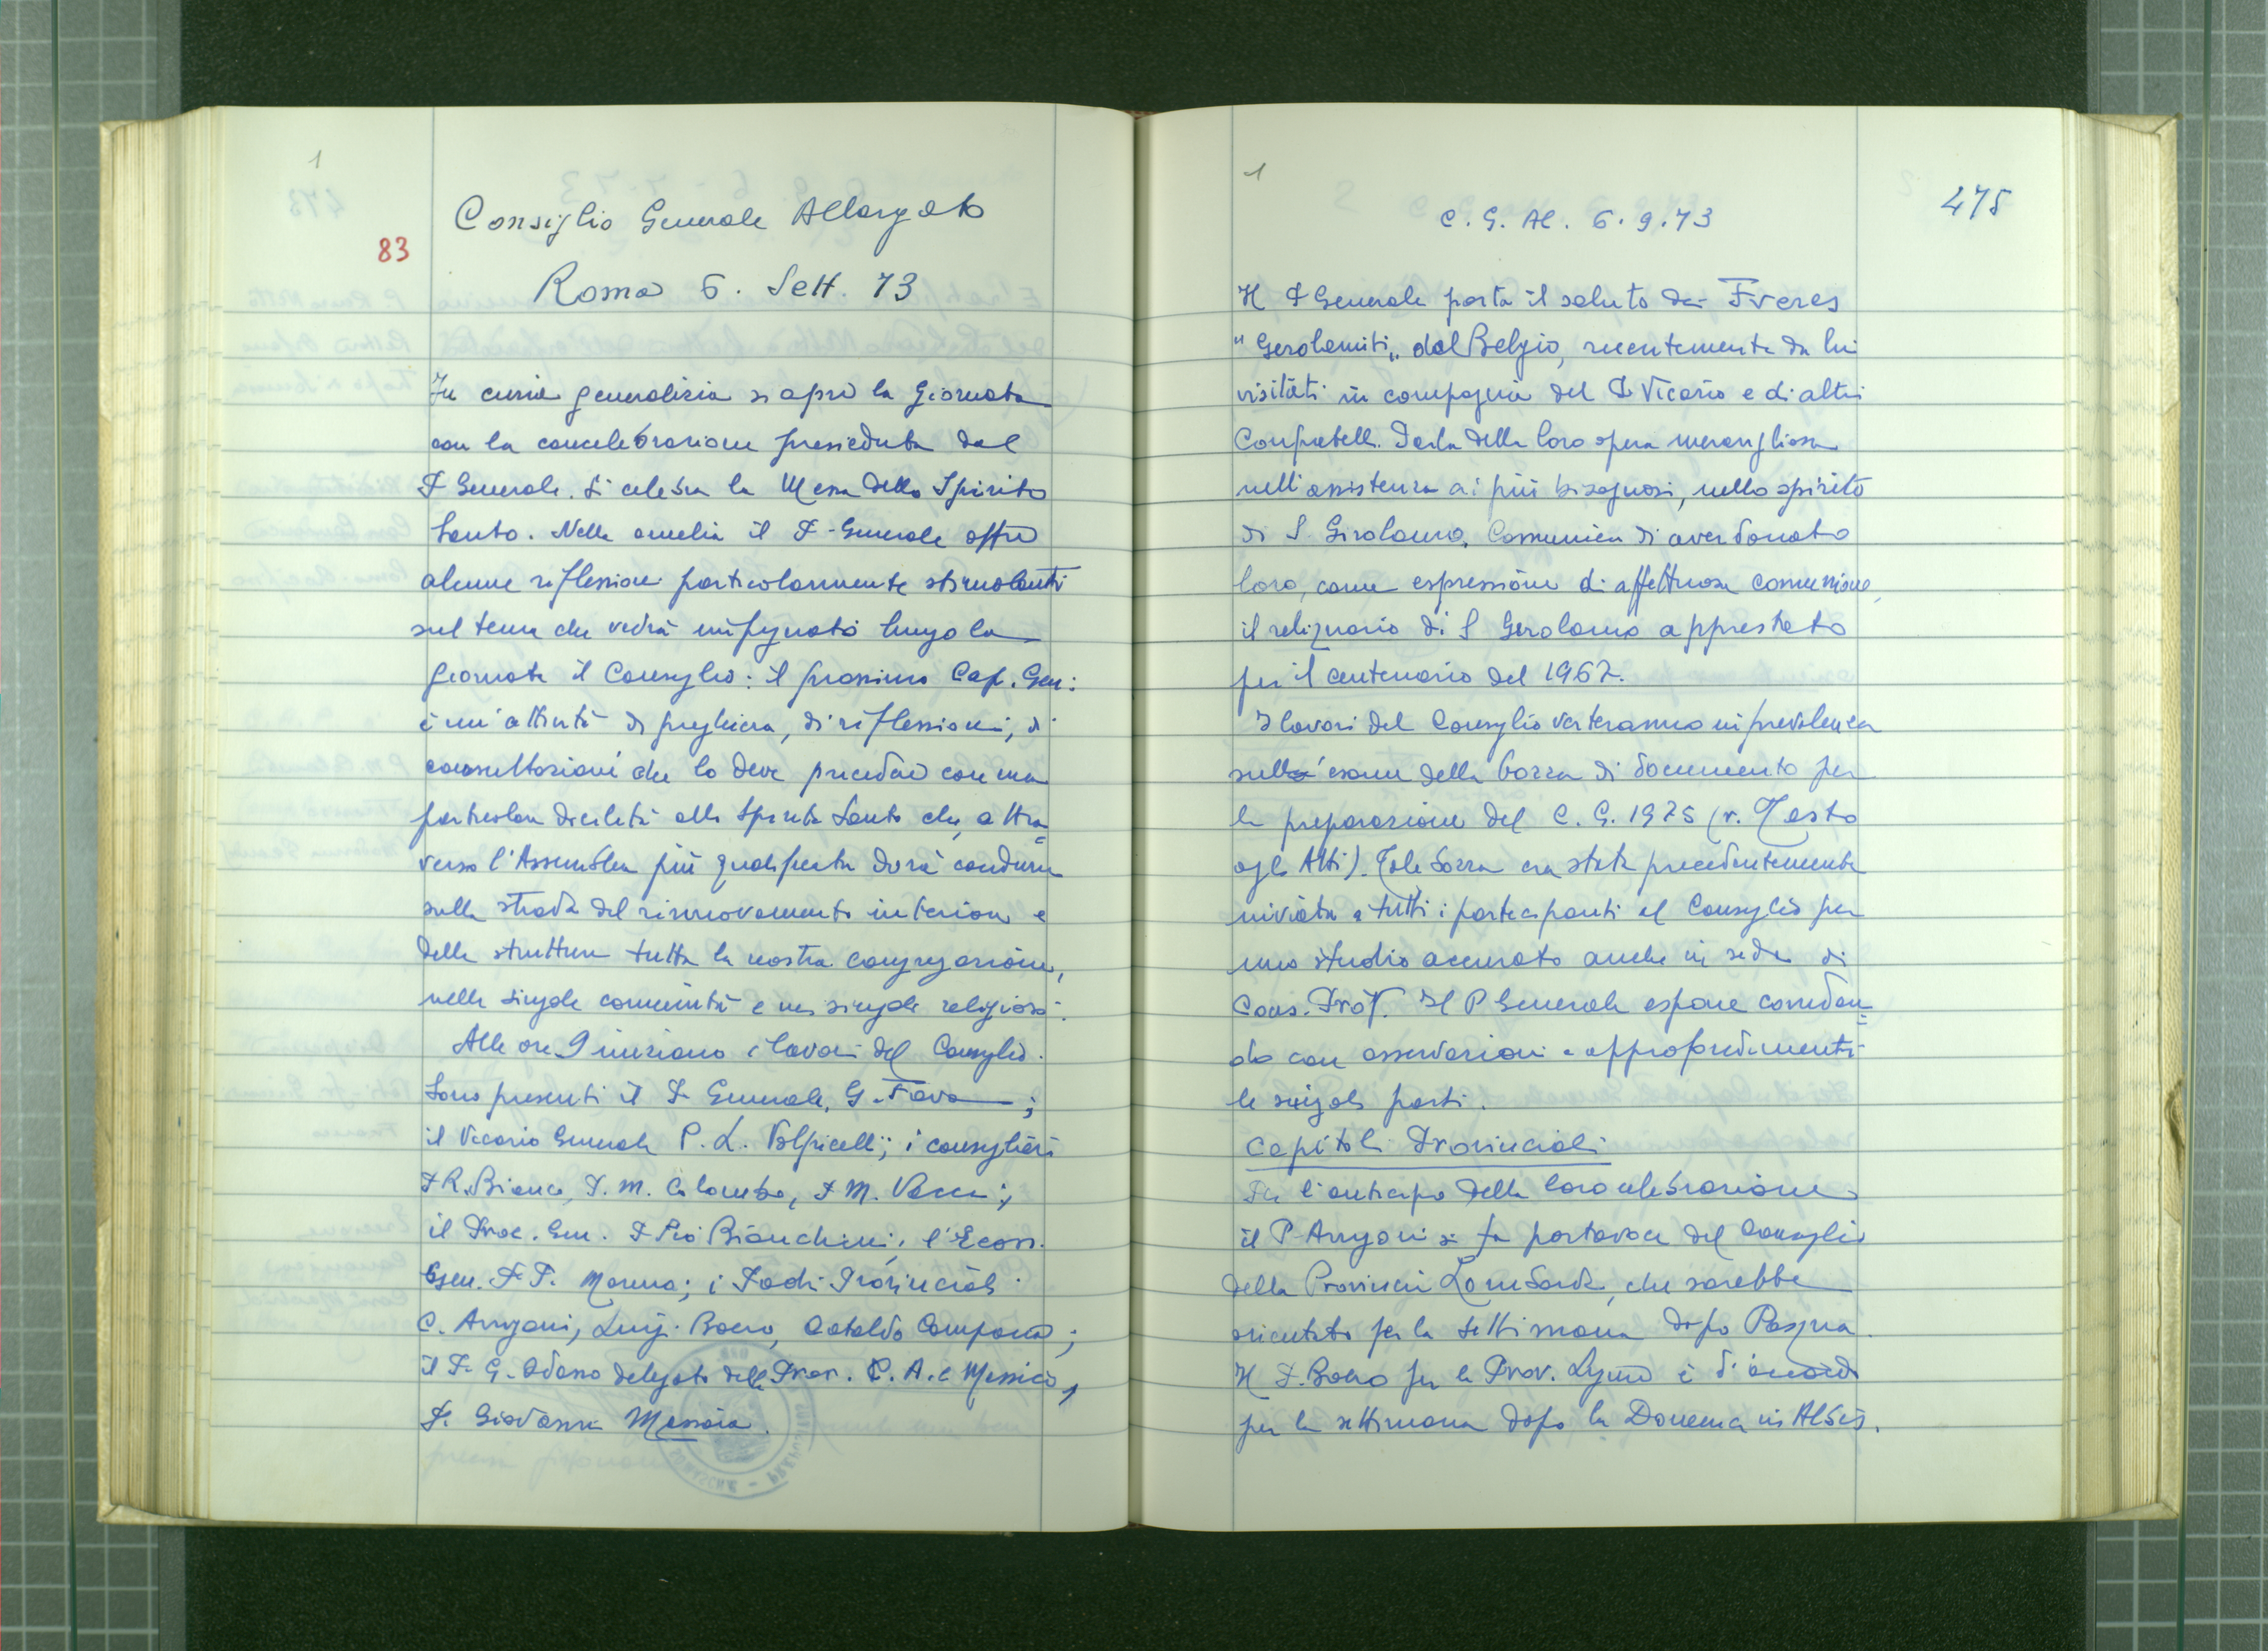 1
83
Consiglio Generale Allargato
Roma 6. Sett. 73
In curia generalizia si apre la giornata
con la concelebrazione presieduta dal
P Generale. Si celebra la Messa dello Spirito
Santo. Nella omelia il P. Generale offre
alcune riflessioni particolarmente stimolanti
sul tema che vedrà impegnato lungo la
giornata il Consiglio: il prossimo Cap. Gen:
è un'attività di preghiera, di riflessioni, di
consultazioni che lo deve precedere con una
particolare docilità allo Spirito Santo che, attra=
verso l'Assemblea più qualificata dovrà condurre
sulla strada del rinnovamento interiore e
delle strutture tutta la nostra congregazione,
nelle singole comunità e nei singoli religiosi.
Alle ore 9 iniziano i lavori del Consiglio.
Sono presenti il P. Generale, G. Fava;
il Vicario Generale P. L. Volpicelli; i consiglieri
P R. Bianco, P. M. Colombo, P M. Vacca;
il Proc. Gen. P Pio Bianchini, l'Econ.
Gen. P. P. Moreno; i Padri Provinciali
C. Arrigoni, Luigi Boero, Cataldo Campana;
il P. G. Odasso delegato della Prov. C. A. e Messico,
P. Giovanni Messora.
1
C. G. Al. 6.9.73
475
Il P Generale porta il saluto dei Freres
"Gerolamiti" dal Belgio, recentemente da lui
visitati in compagnia del P. Vicario e di altri
Confratelli. Parla della loro opera meravigliosa
nell'assistenza ai più bisognosi, nello spirito
di S. Girolamo. Comunica di aver donato
loro, come espressione di affettuosa comunione,
il reliquario di S Gerolamo apprestato
per il centenario del 1967.
I lavori del Consiglio verteranno in prevalenza
sull'esame della bozza di documento per
la preparazione del C. G. 1975 (v. Testo
agli Atti). Tale bozza era stata precedentemente
inviata a tutti i partecipanti al Consiglio per
uno studio accurato anche in sede di
Cons. Prov. Il P Generale espone corredan=
do con osservazioni e approfondimenti
le singole parti.
Capitoli Provinciali
Per l'anticipo della loro celebrazione
il P Arrigoni si fa portavoce del Consiglio
della Provincia Lombarda, che sarebbe
orientato per la settimana dopo Pasqua.
Il P. Boero per la Prov. Ligure è d'accordo
per la settimana dopo la Domenica in Albis.